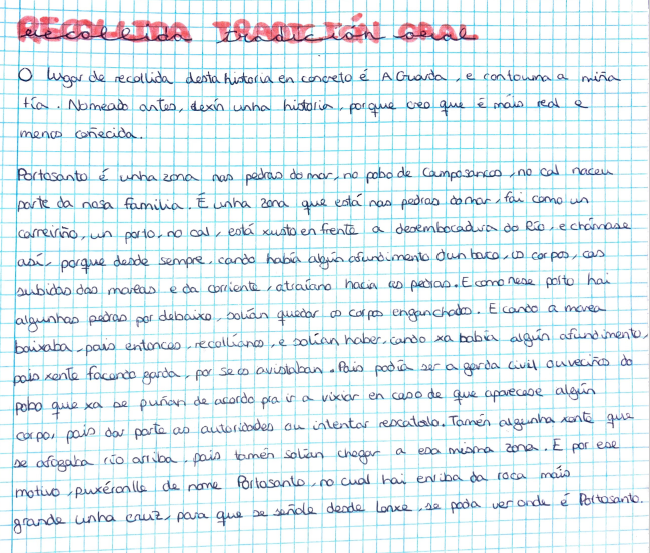 RECOLLIDA TRADICIÓN ORAL
O lugar de recollida desta historia en concreto é A Guarda, e contouma a miña
tía. Nomeado antes, dexín unha historia, porque creo que é máis real e
menos coñecida.
Portosanto é unha zona nas pedras do mar, no pobo de Camposancos, no cal naceu
parte da nosa familia. É unha zona que está nas pedras do mar, fai como un
carreiriño, un porto, no cal, está xusto en frente a desembocadura do Río, e chámase
así, porque dende sempre, cando había algún afundimento dun barco, os corpos, cas
subidas das mareas e da corriente, atraíanos hacia as pedras. E como nese porto hai
algunhas pedras por debaixo, solían quedar os corpos enganchados. E cando a marea
baixaba, pois entonces, recollíanos, e solían haber, cando xa había algún afundimento,
pois xente facendo garda, por se os avistaban. Pois podía ser a garda civil ou veciños do
pobo que xa se puñan de acordo pra ir a vixiar en caso de que aparecese algún
corpo, pois dar parte as autoridades ou intentar rescatalo. Tamén algunha xente que
se afogaba río arriba, pois tamén solían chegar a esa misma zona. E por ese
motivo, puxéronlle de nome Portosanto, no cual hai enriba da roca máis
grande unha cruz, para que se señale dende lonxe, se poda ver onde é Portosanto.